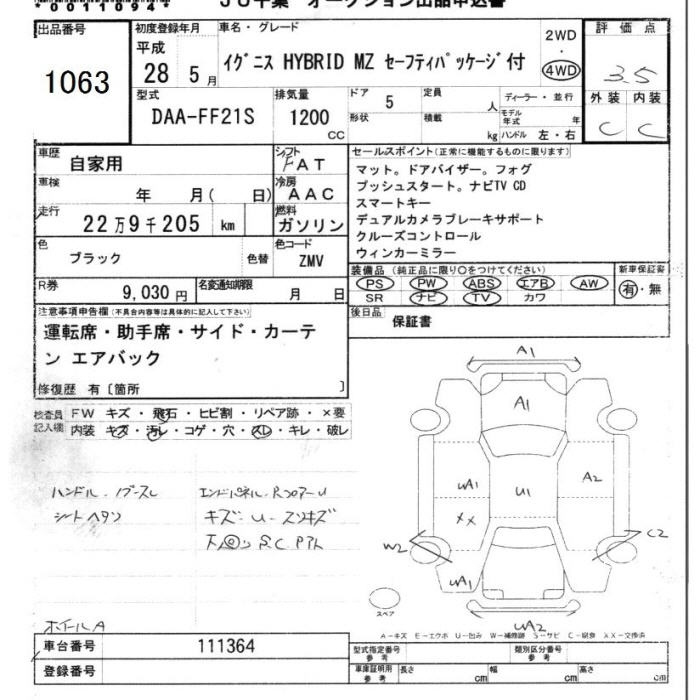 *00110094*
JU千葉 オークション出品申込書
出品番号
1063
初度登録年月
平成
28 5月
車名・グレード
イグニス HYBRID MZ セーフティパッケージ付
2WD
・
4WD
評価点
3.5
外装 内装
C C
型式
DAA-FF21S
排気量
1200
CC
ドア 5
定員
人
形状
積載
kg
ディーラー・並行
モデル年式 年
ハンドル 左・右
車歴
自家用
シフト
FAT
車検
年 月( 日)
冷房
AAC
走行
22万9千205 km
燃料
ガソリン
色
ブラック
色替
色コード
ZMV
R券
9,030円
名変通知期限
月 日
セールスポイント(正常に機能するものに限ります)
マット。ドアバイザー。フォグ
プッシュスタート。ナビTV CD
スマートキー
デュアルカメラブレーキサポート
クルーズコントロール
ウィンカーミラー
装備品(純正品に限り〇をつけてください)
PS PW ABS エアB AW
SR ナビ TV カワ
新車保証書
有・無
後日品
保証書
注意事項申告欄(不具合内容等は具体的に記入して下さい)
運転席・助手席・サイド・カーテ
ン エアバック
修復歴 有〔箇所 〕
検査員
記入欄
FW キズ・飛石・ヒビ割・リペア跡・×要
内装 キズ・汚レ・コゲ・穴・スレ・キレ・破レ
シートヘタリ
キズ・U・スリキズ
ホイールA
A1
A1
UA1
A2
U1
XX
W2
C2
UA1
UA2
スペア
A-キズ E-エクボ U-凹み W-補修跡 S-サビ C-腐食 XX-交換済
車台番号
111364
登録番号
型式指定番号
参考
類別区分番号
参考
車庫証明用
参考
長さ cm
幅 cm
高さ cm